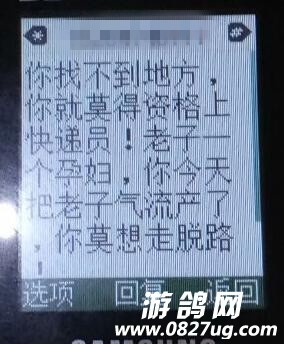 你找不到地方，
你就莫得资格上
快递员！老子一
个孕妇，你今天
把老子气流产了
，你莫想走脱路
！
选项 回复 返回
游鸽网
www.0827ug.com
SAMSUNG